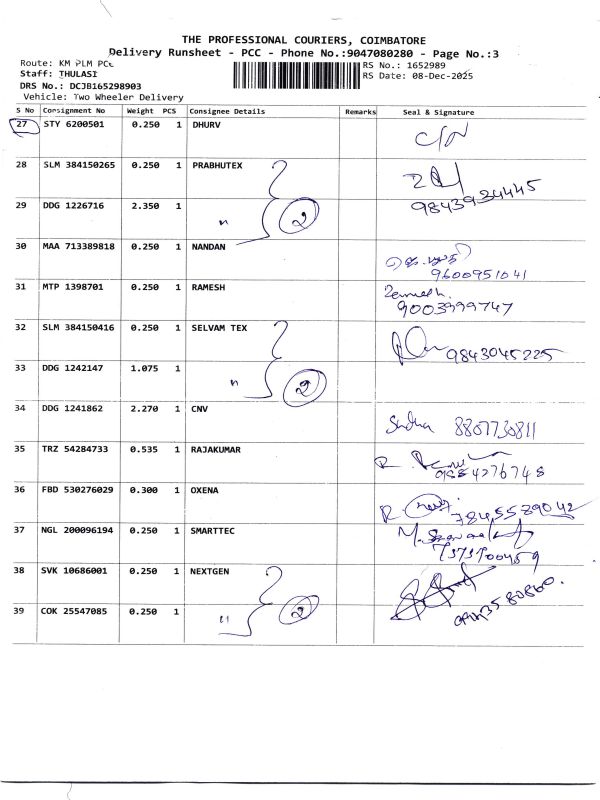 THE PROFESSIONAL COURIERS, COIMBATORE
Delivery Runsheet - PCC - Phone No.:9047080280 - Page No.:3
Route: KM PLM PCC
RS No.: 1652989
Staff: THULASI
RS Date: 08-Dec-2025
DRS No.: DCJB165298903
Vehicle: Two Wheeler Delivery
S No Consignment No Weight PCS Consignee Details Remarks Seal & Signature
27 STY 6200501 0.250 1 DHURV
28 SLM 384150265 0.250 1 PRABHUTEX
29 DDG 1226716 2.350 1 " 2 9843934445
30 MAA 713389818 0.250 1 NANDAN 9600951041
31 MTP 1398701 0.250 1 RAMESH 9003999747
32 SLM 384150416 0.250 1 SELVAM TEX 9843045225
33 DDG 1242147 1.075 1 " 2
34 DDG 1241862 2.270 1 CNV Sudha 8807730811
35 TRZ 54284733 0.535 1 RAJAKUMAR
36 FBD 530276029 0.300 1 OXENA
37 NGL 200096194 0.250 1 SMARTTEC
38 SVK 10686001 0.250 1 NEXTGEN
39 COK 25547085 0.250 1 " 2